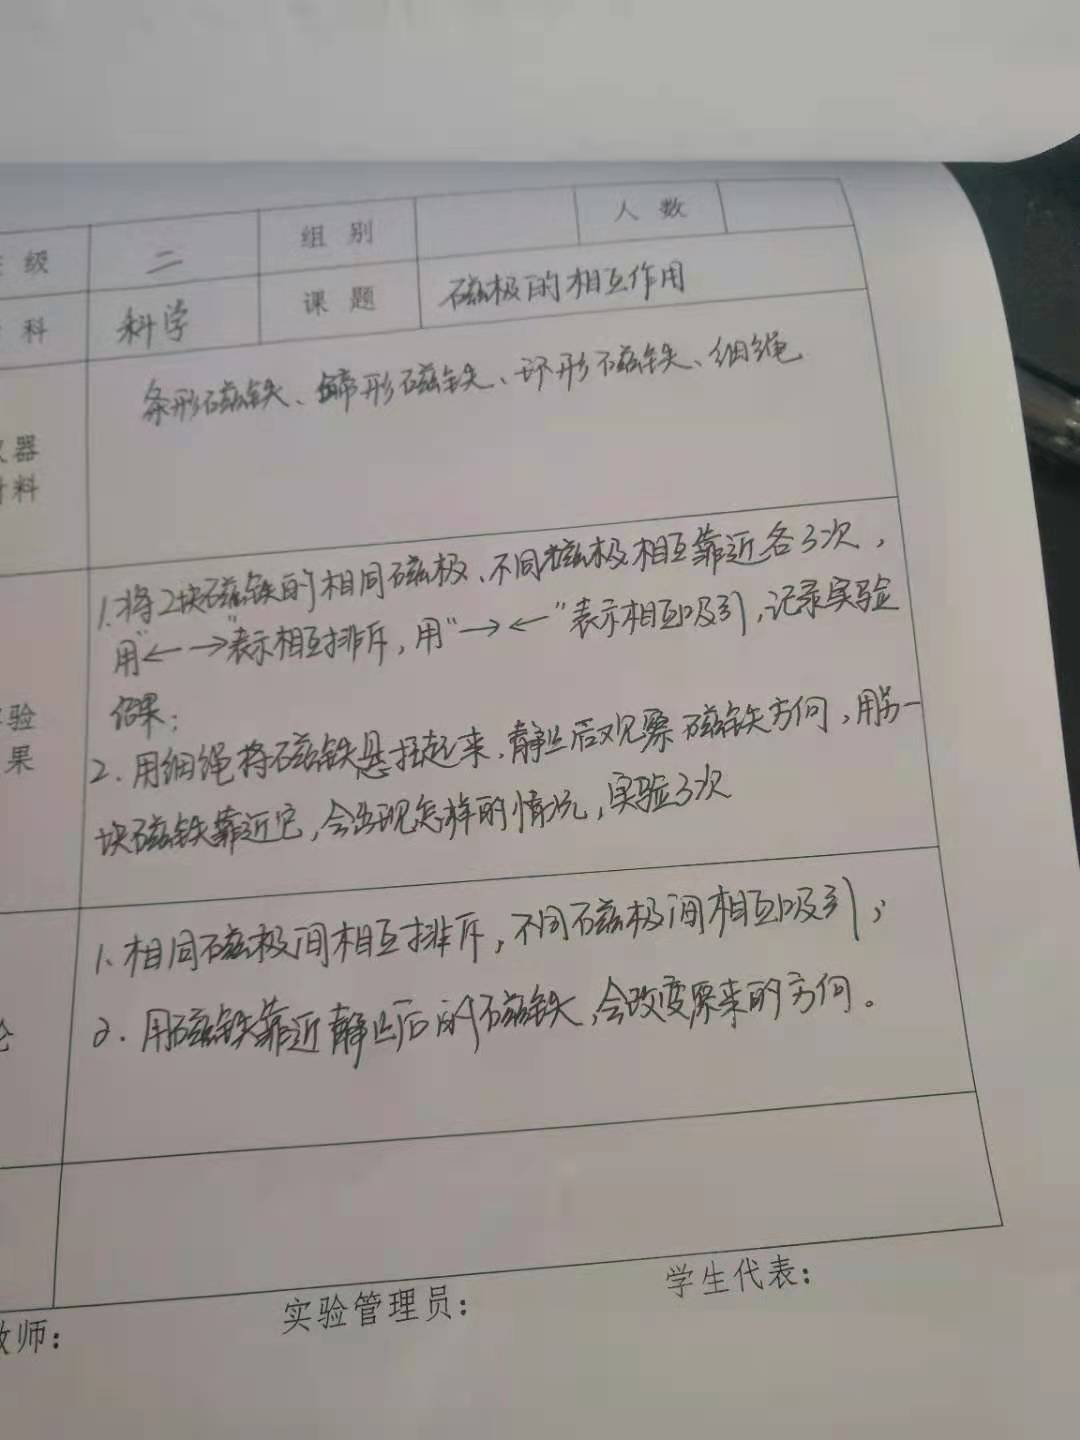 级 二 组别 人数
科 科学 课题 磁极的相互作用
条形磁铁、蹄形磁铁、环形磁铁、细绳
器
料
1.将2块磁铁的相同磁极、不同磁极相互靠近各3次，
用“←→”表示相互排斥，用“→←”表示相互吸引，记录实验
结果；
验
果
2.用细绳将磁铁悬挂起来，静止后观察磁铁方向，用另一
块磁铁靠近它，会出现怎样的情况，实验3次
1.相同磁极间相互排斥，不同磁极间相互吸引；
2.用磁铁靠近静止后的磁铁，会改变原来的方向。
师： 实验管理员： 学生代表：